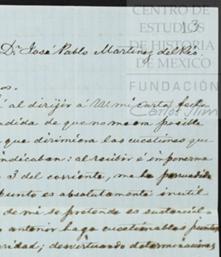 CENTRO DE
ESTUDIOS
DE HISTORIA
DE MEXICO
FUNDACIÓN
Carlos Slim
13
Dn José Pablo Martinez del Rio.
al dirijir á U mi carta fecha
de que no me era posible
que dirimiera las cuestiones que
indicaban: al recibir é imponerme
3 del corriente, me ha parecido
punto es absolutamente inutil
de mi se pretende es sustancial
anterior haga cuestionables puntos
desvirtuando determinaciones